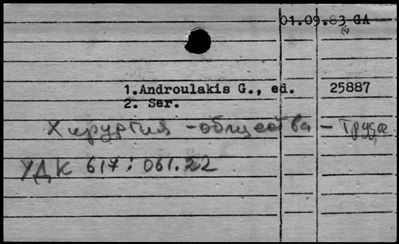 01.09.83 GA
1.Androulakis G., ed. 25887
2. Ser.
Хирургия - общества - Труды
УДК 617:061.22